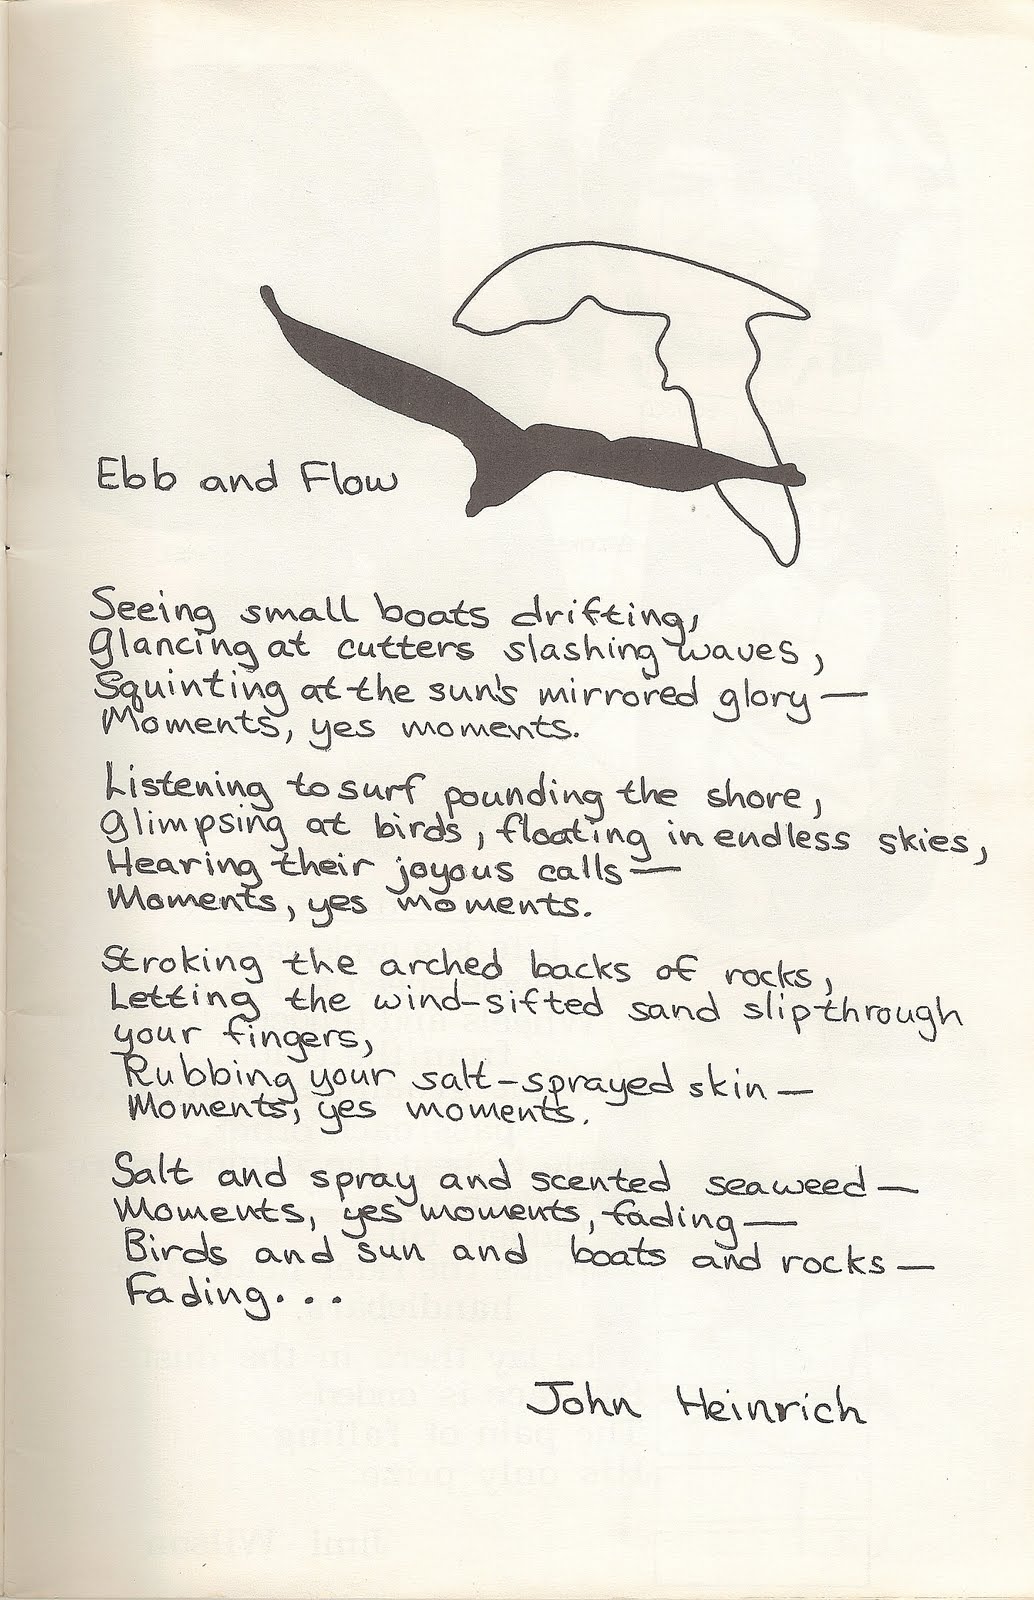 Ebb and Flow
Seeing small boats drifting,
Glancing at cutters slashing waves,
Squinting at the sun's mirrored glory —
Moments, yes moments.
Listening to surf pounding the shore,
Glimpsing at birds, floating in endless skies,
Hearing their joyous calls —
Moments, yes moments.
Stroking the arched backs of rocks,
Letting the wind-sifted sand slip through
your fingers,
Rubbing your salt-sprayed skin —
Moments, yes moments.
Salt and spray and scented seaweed —
Moments, yes moments, fading —
Birds and sun and boats and rocks —
Fading...
John Heinrich